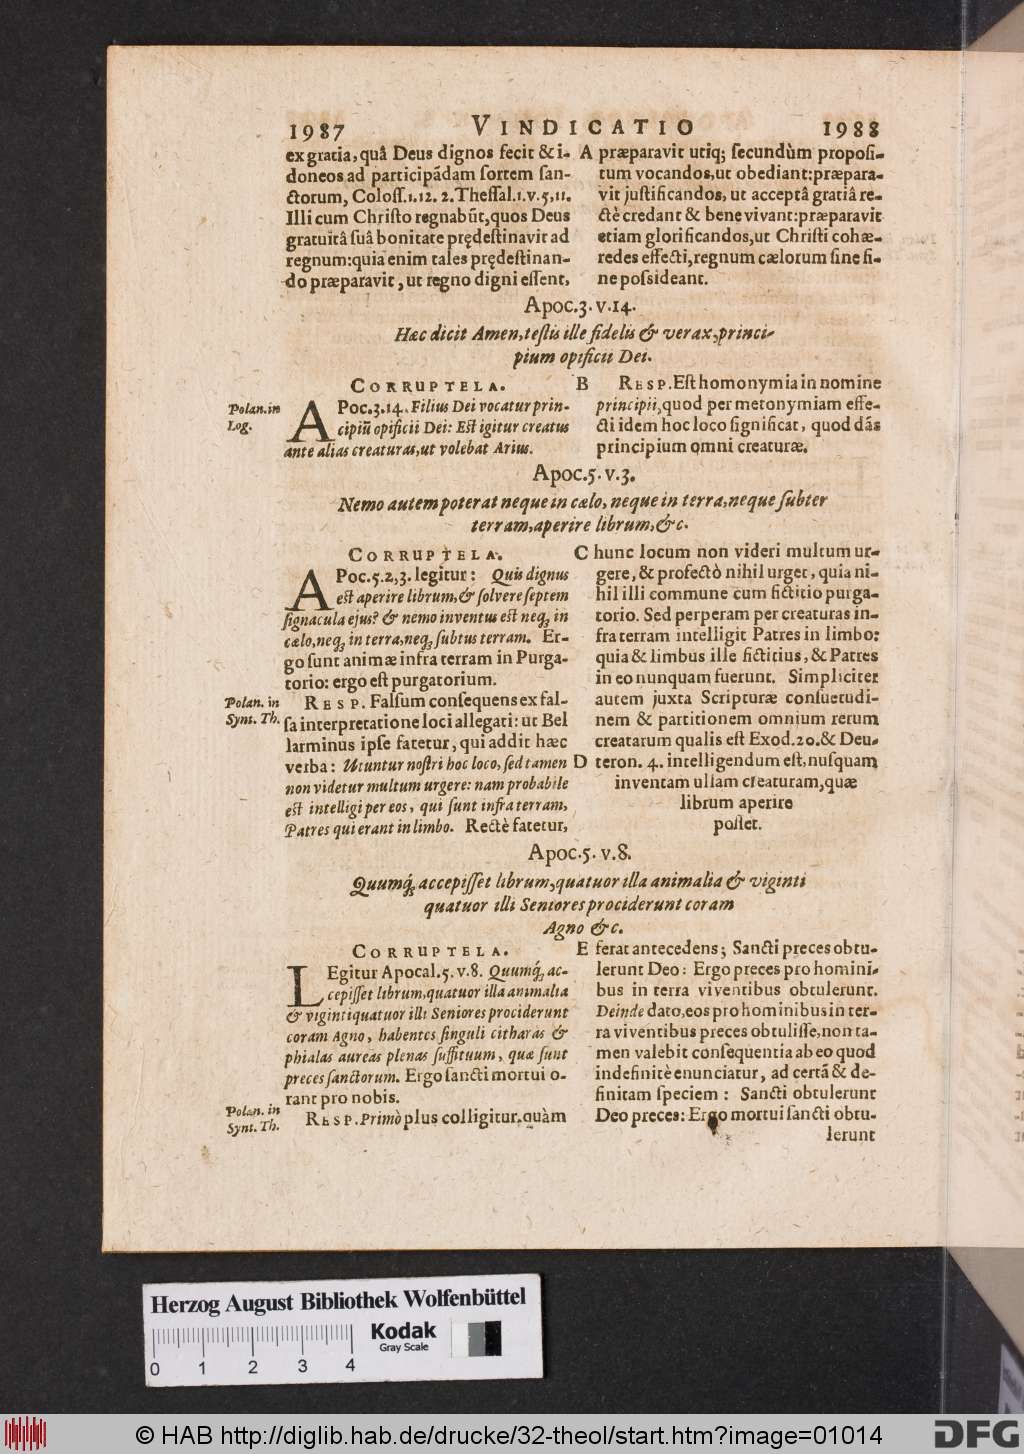 1987 VINDICATIO 1988
ex gratia, quâ Deus dignos fecit & i-
doneos ad participãdam sortem san-
ctorum, Coloss.1.12. 2.Thessal.1.v.5,11.
Illi cum Christo regnabũt, quos Deus
gratuitâ suâ bonitate prędestinavit ad
regnum: quia enim tales prędestinan-
do præparavit, ut regno digni essent,
A præparavit utiq; secundùm proposi-
tum vocandos, ut obediant: præpara-
vit justificandos, ut acceptâ gratiâ re-
ctè credant & bene vivant: præparavit
etiam glorificandos, ut Christi cohæ-
redes effecti, regnum cælorum sine fi-
ne possideant.
Apoc.3.v.14.
Hæc dicit Amen, testis ille fidelis & verax, princi-
pium opificii Dei.
CORRUPTELA.
Polan. in
Log.
APoc.3.14. Filius Dei vocatur prin-
cipiũ opificii Dei: Est igitur creatus
ante alias creaturas, ut volebat Arius.
B RESP. Est homonymia in nomine
principii, quod per metonymiam effe-
cti idem hoc loco significat, quod dãs
principium omni creaturæ.
Apoc.5.v.3.
Nemo autem poterat neque in cælo, neque in terra, neque subter
terram, aperire librum, &c.
CORRUPTELA.
APoc.5.2,3. legitur: Quis dignus
est aperire librum, & solvere septem
signacula ejus? & nemo inventus est neq; in
cælo, neq; in terra, neq; subtus terram. Er-
go sunt animæ infra terram in Purga-
torio: ergo est purgatorium.
Polan. in
Synt. Th.
RESP. Falsum consequens ex fal-
sa interpretatione loci allegati: ut Bel
larminus ipse fatetur, qui addit hæc
verba: Utuntur nostri hoc loco, sed tamen
non videtur multum urgere: nam probabile
est intelligi per eos, qui sunt infra terram,
Patres qui erant in limbo. Rectè fatetur,
C hunc locum non videri multum ur-
gere, & profectò nihil urget, quia ni-
hil illi commune cum fictitio purga-
torio. Sed perperam per creaturas in-
fra terram intelligit Patres in limbo:
quia & limbus ille fictitius, & Patres
in eo nunquam fuerunt. Simpliciter
autem juxta Scripturæ consuetudi-
nem & partitionem omnium rerum
creatarum qualis est Exod.20. & Deu-
D teron. 4. intelligendum est, nusquam
inventam ullam creaturam, quæ
librum aperire
posset.
Apoc.5.v.8.
Quumq; accepisset librum, quatuor illa animalia & viginti
quatuor illi Seniores prociderunt coram
Agno &c.
CORRUPTELA.
LEgitur Apocal.5.v.8. Quumq; ac-
cepisset librum, quatuor illa animalia
& viginti quatuor illi Seniores prociderunt
coram Agno, habentes singuli citharas &
phialas aureas plenas suffituum, quæ sunt
preces sanctorum. Ergo sancti mortui o-
rant pro nobis.
Polan. in
Synt. Th.
RESP. Primò plus colligitur, quàm
E ferat antecedens; Sancti preces obtu-
lerunt Deo: Ergo preces pro homini-
bus in terra viventibus obtulerunt.
Deinde dato, eos pro hominibus in ter-
ra viventibus preces obtulisse, non ta-
men valebit consequentia ab eo quod
indefinitè enunciatur, ad certã & de-
finitam speciem: Sancti obtulerunt
Deo preces: Ergo mortui sancti obtu-
lerunt
Herzog August Bibliothek Wolfenbüttel
Kodak
Gray Scale
0 1 2 3 4
© HAB http://diglib.hab.de/drucke/32-theol/start.htm?image=01014
DFG